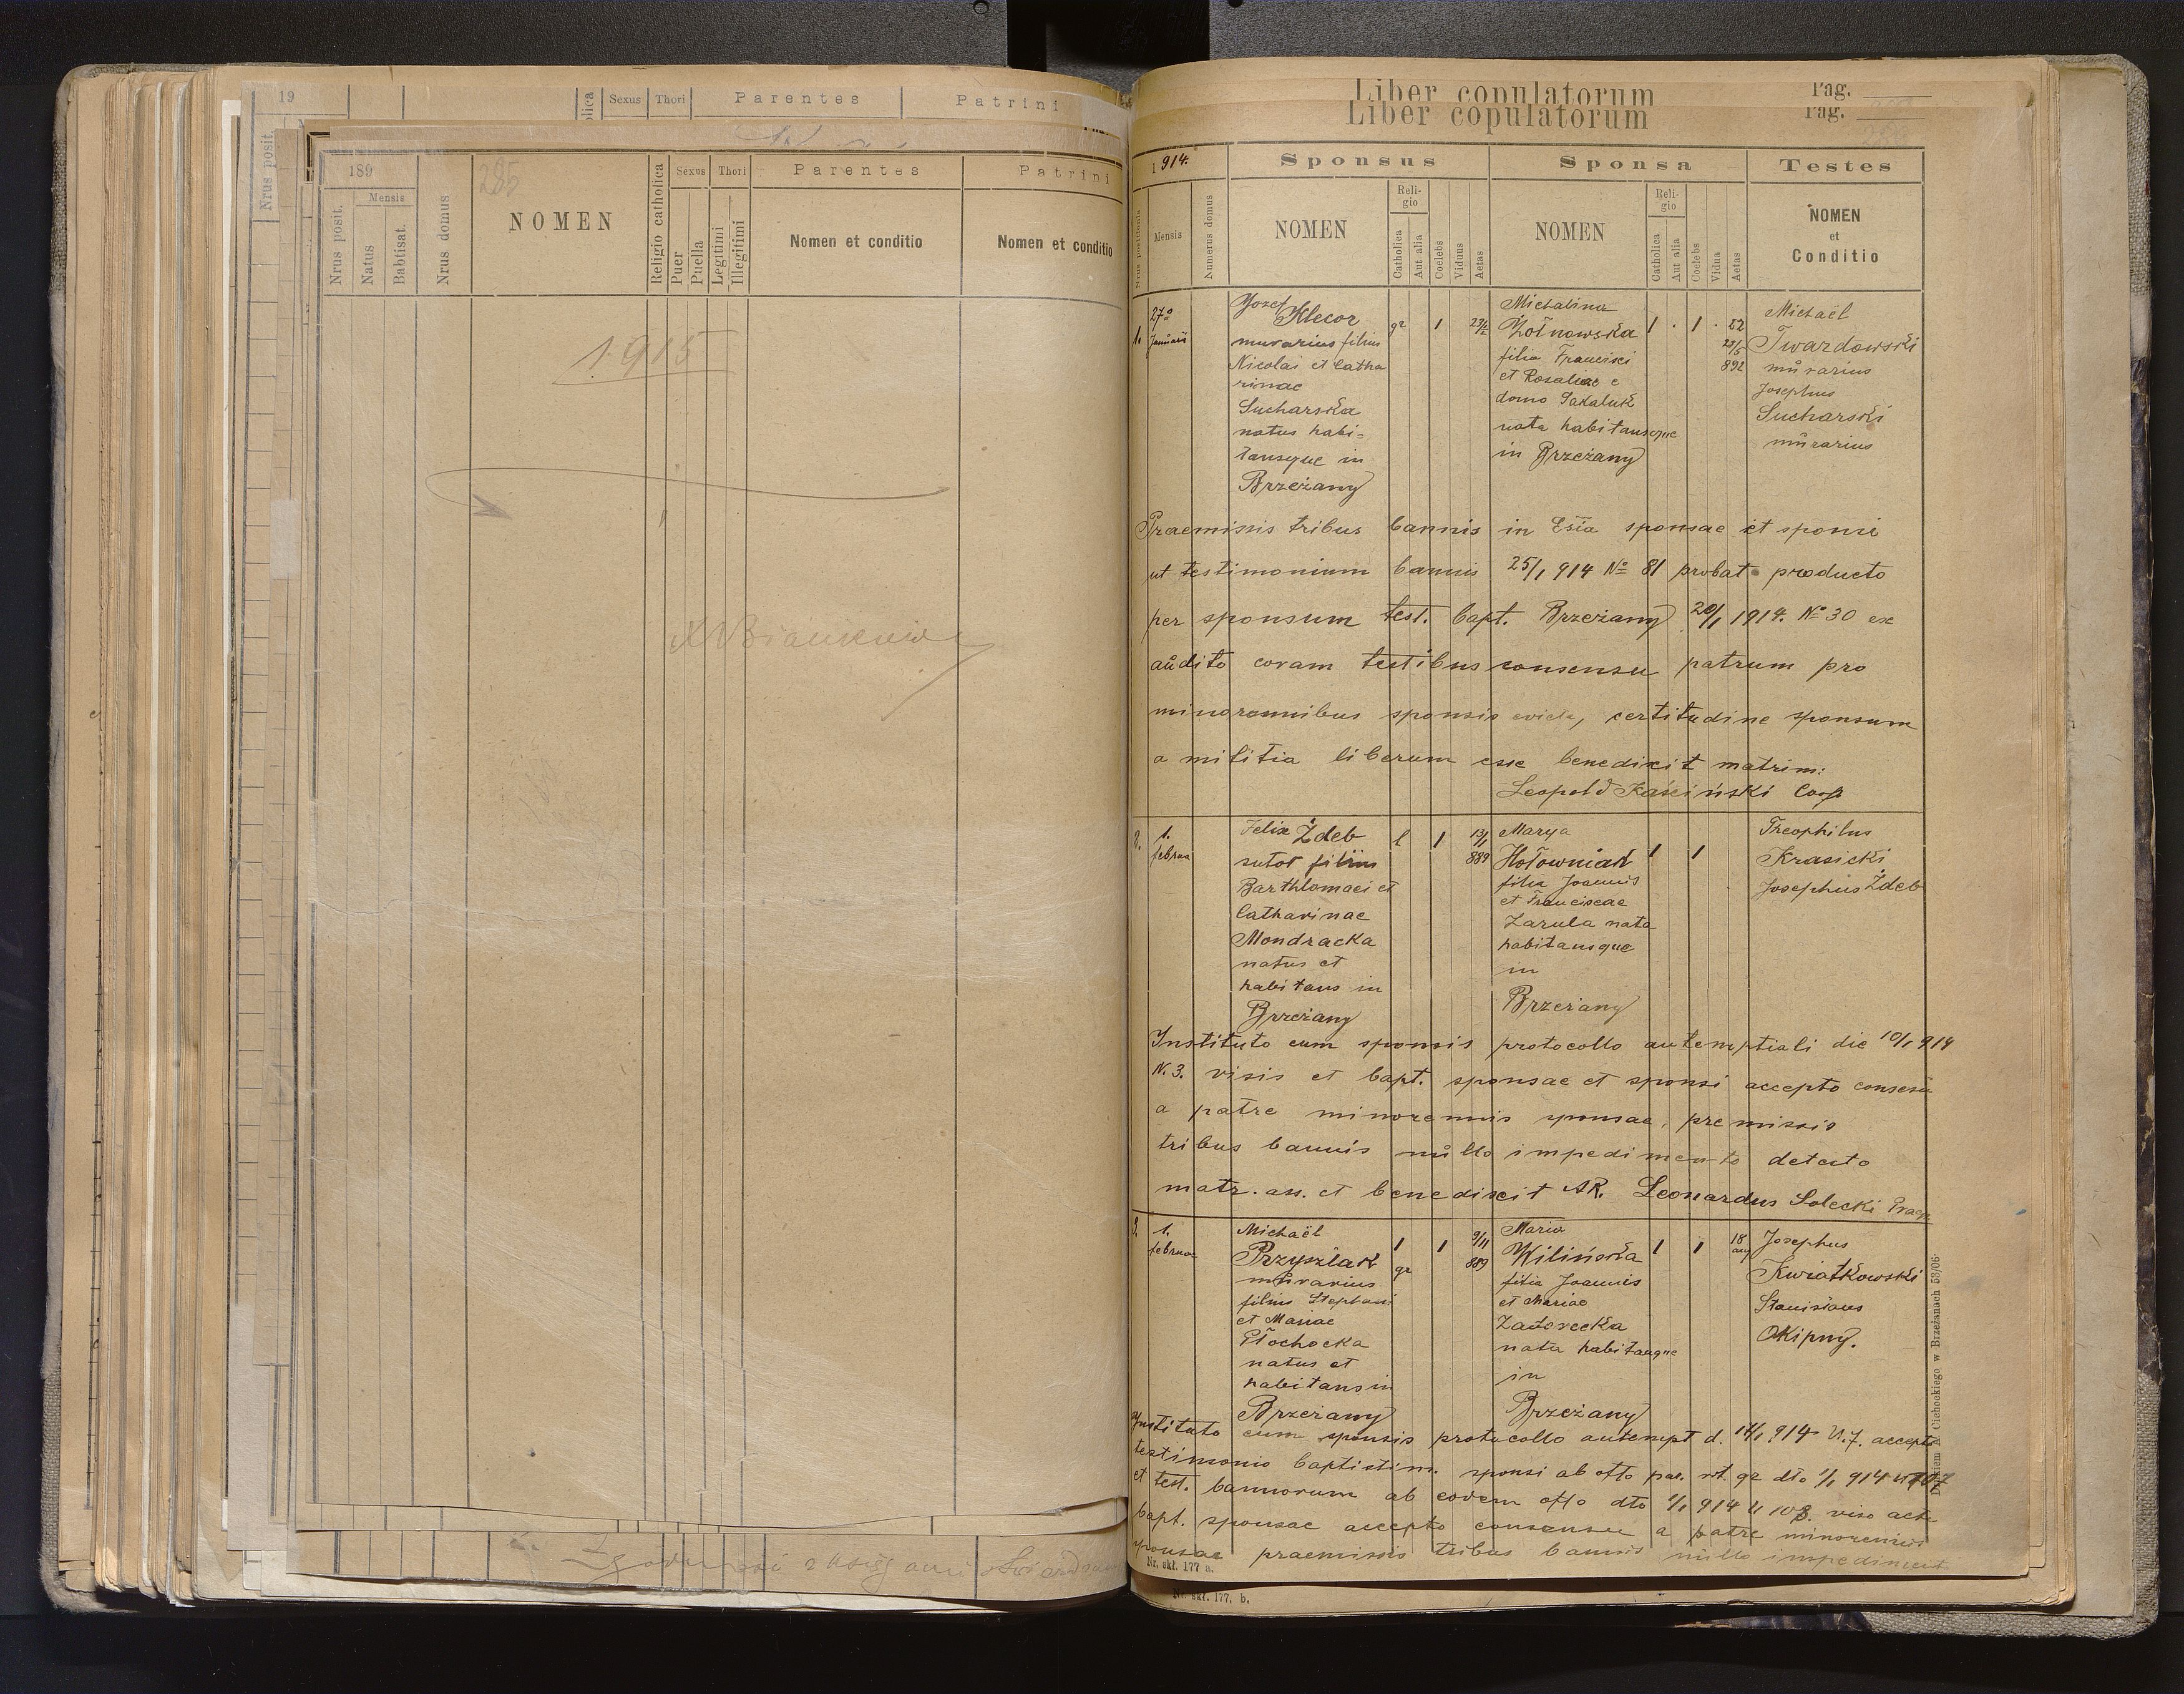 19
Nrus posit.
Sexus Thori Parentes Patrini
189
285
Nrus posit.
Mensis
Natus
Babtisat.
Nrus domus
NOMEN
Religio catholica
Sexus
Puer
Puella
Thori
Legitimi
Illegitimi
Parentes
Nomen et conditio
Patrini
Nomen et conditio
1915
Liber copulatorum Pag.
Liber copulatorum Pag.
1914.
Sponsus
Sponsa
Testes
Nrus positionis
Mensis
Numerus domus
NOMEN
Reli-
gio
Catholica
Aut alia
Coelebs
Viduus
Aetas
NOMEN
Reli-
gio
Catholica
Aut alia
Coelebs
Vidua
Aetas
NOMEN
et
Conditio
1.
27º
Januarii
Jozef
Klecor
murarius filius
Nicolai et Catha
rinae
Sucharska
natus habi=
tansque in
Brzeżany
gr
1
23/2
Michalina
Żołnowska
filia Francisci
et Rosaliae e
domo Sakaluk
nata habitansque
in Brzeżany
1 . 1 . 22
23/5
892
Michaël
Twardowski
murarius
Josephus
Sucharski
murarius
Praemissis tribus bannis in Ecclia sponsae et sponsi
ut testimonium bannis 25/1 914 Nº 81 probat producto
per sponsum test. bapt. Brzeżany 20/1 1914. Nº 30 ex
audito coram testibus consensu patrum pro
minorennibus sponsis evicta, certitudine sponsum
a militia liberum esse benedixit matrim:
Leopold Kaściński Coop
2.
1.
februa
Felix Żdeb
sutor filius
Barthlomaei et
Catharinae
Mondracka
natus et
habitans in
Brzeżany
l
1
13/1
889
Marya
Hołowniak
filia Joannis
et Franciscae
Zarula nata
habitansque
in
Brzeżany
1
1
Theophilus
Krasicki
Josephus Żdeb
Instituto cum sponsis protocollo autemptiali die 10/1 914
N. 3. visis et bapt. sponsae et sponsi accepto consesu
a patre minorennis sponsae, premissis
tribus bannis nullo impedimento detecto
matr. ass. et benedixit AR. Leonardus Solecki
3.
1.
februar
Michaël
Przyszlak
murarius
filius Stephani
et Mariae
Płochocka
natus et
habitans in
Brzeżany
1
gr
1
9/11
889
Maria
Wilińska
filia Joannis
et Mariae
Zadorecka
nata habitasque
in
Brzeżany
1
1
18
Josephus
Kwiatkowski
Stanislaus
Okipny.
Instituto cum sponsis protocollo autempt d. 14/1 914 N. 7. accepto
testimonio baptistim. sponsi ab offo par. rit. gr dto 1/1 914 N 107
et test. bannorum ab eodem offo dto 1/1 914 N 108. viso acte
bapt. sponsae accepto consensu a patre minorennis
sponsae praemissis tribus bannis nullo impediment
Nr. skł. 177 a.
Nr. skł. 177. b.
Cichockiego w Brzeżanach 58/06.